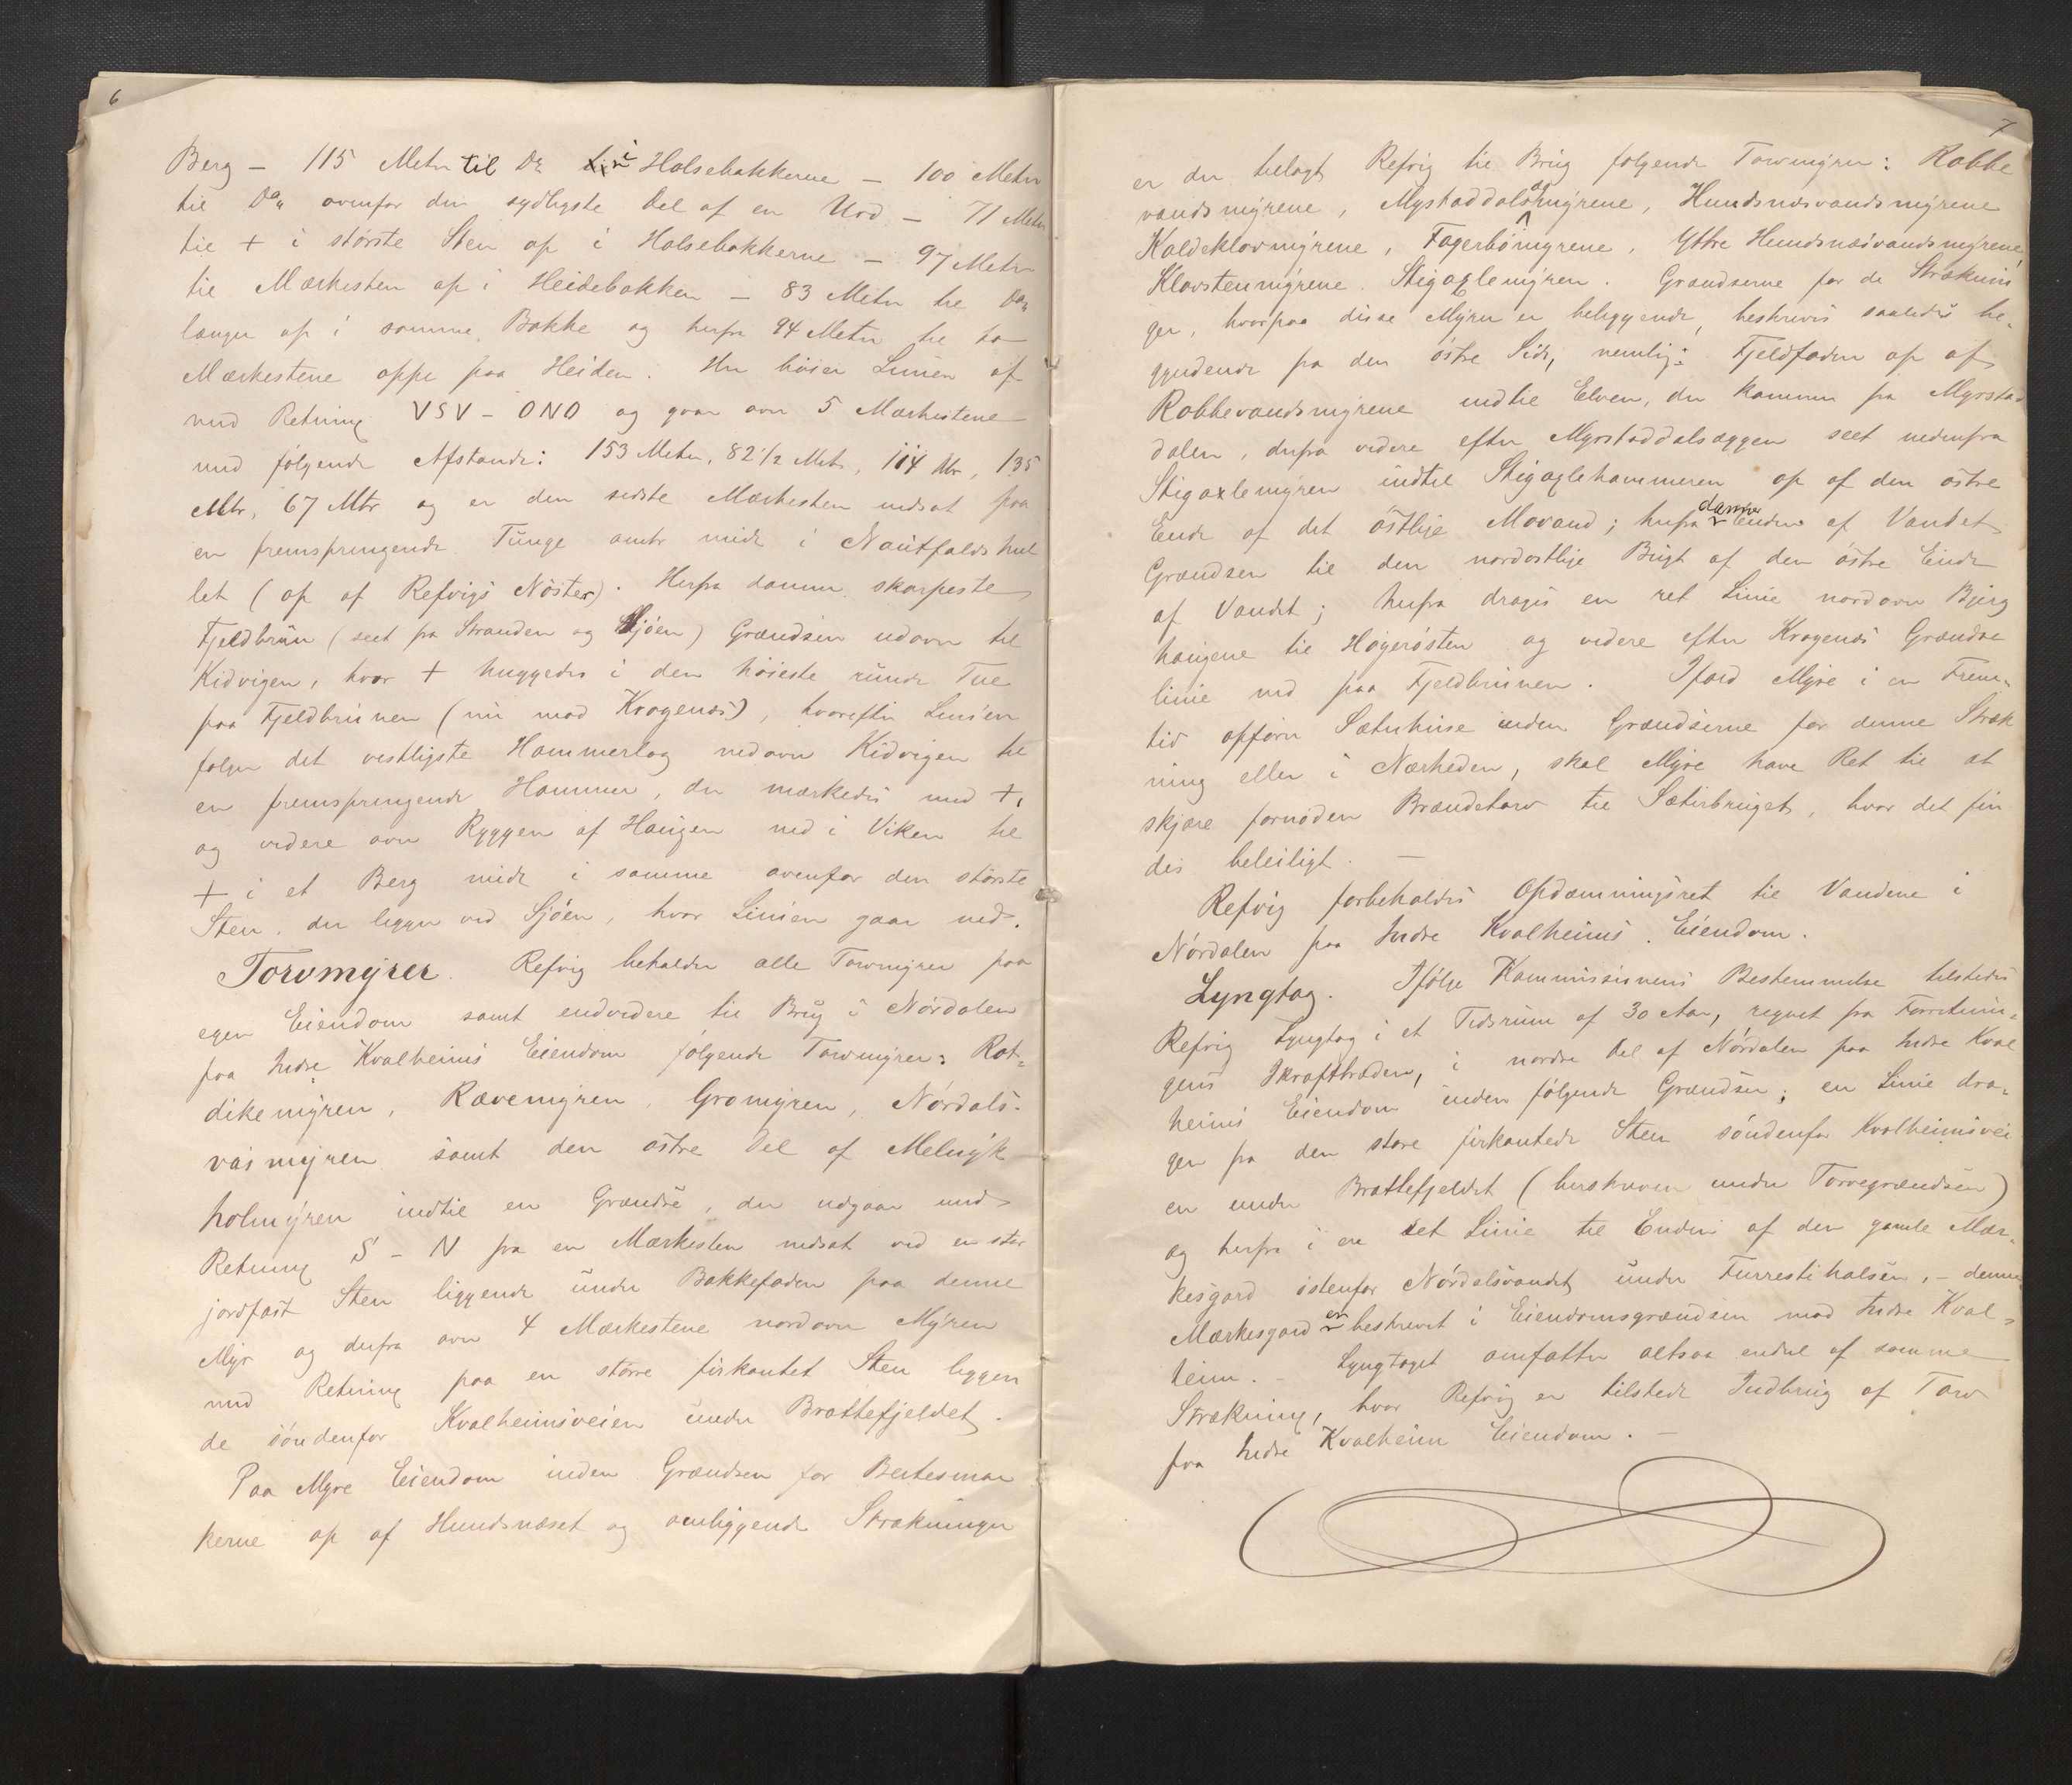 6
Berg – 115 Meter til Do i Halsebakkerne – 100 Meter
til Do ovenfor den sydligste Del af en Urd – 71 Meter
til + i største Sten op i Halsebakkerne – 97 Meter
til Mærkesten op i Heidebakken – 83 Meter til Do
længer op i samme Bakke og herfra 94 Meter til to
Mærkestene oppe paa Heiden. Her bøier Linien af
med Retning VSV – ONO og gaar over 5 Mærkestene
med følgende Afstande: 153 Meter, 82 1/2 Metr, 114 Mtr, 135
Mtr, 67 Mtr og er den sidste Mærkesten nedsat paa
en fremspringende Tunge midt i Nautfaldshul
let (op af Refvigs Nöster). Herfra danner skarpeste
Fjeldbrün (seet fra Stranden og Sjöen) Grændsen udover til
Kidvigen, hvor + huggedes i den høieste runde Tue
paa Fjeldbrünen (nu mod Kragenæs), hvorefter Linien
følger det vestligste Hammerlag nedover Kidvigen til
en fremspringende Hammer, der mærkedes med +,
og videre over Ryggen af Haugen ned i Viken til
+ i et Berg midt i samme ovenfor den største
Sten, der ligger ved Sjöen, hvor Linien gaar ned.
Torvmyrer. Refvig beholder alle Torvmyrer paa
egen Eiendom samt endvidere til Brug i Nórdalen
paa Indre Kvalheims Eiendom følgende Torvmyrer: Rot-
dikemyren, Rævemyren, Gromyren, Nórdals-
vasmyren samt den østre Del af Melmyk
holmyren indtil en Grændse, der udgaar med
Retning S – N fra en Mærkesten nedsat ved en stor
jordfast Sten liggende under Bakkefoden paa denne
Myr og derfra over 4 Mærkestene nordover Myren
med Retning paa en større firkantet Sten liggen
de söndenfor Kvalheimsveien under Brattefjeldet.
Paa Myre Eiendom inden Grændsen for Beitesmar
kerne op af Hundsnæset og omliggende Strækninger
7
er der tillagt Refvig til Brug følgende Torvmyrer: Robbe
vandsmyrene, Mystaddalsmyrene, Hundsnæsvandsmyrene
Kaldeklovmyrene, Fagerbömyrene, Yttre Hundsnæsvandsmyrene,
Klovstenmyrene, Stigaxlemyren. Grændserne for de Stræknin
ger, hvorpaa disse Myrer er beliggende, beskrives saaledes be-
gyndende fra den østre Side, nemlig: Fjeldfoden op af
Robbevandsmyrene indtil Elven, der kommer fra Myrstad
dalen, derfra videre efter Myrstaddalsæggen seet nedenfra
Stigaxlemyren indtil Stigaxlehammeren op af den østre
Ende af det østlige Movand; herfra danner Enden af Vandet
Grændsen til den nordostlige Bugt af den østre Ende
af Vandet; herfra drages en ret Linie nordover Bjerg
haugene til Høgerösten og videre efter Kragenæs Grændse
linie ned paa Fjeldbrünen. Ifald Myre i en Frem-
tid opfører Sæterhuse inden Grændserne for denne Stræk
ning eller i Nærheden, skal Myre have Ret til at
skjære fornøden Brændetorv til Sæterbruget, hvor det fin
des beleiligt. –
Refvig forbeholdes Opdæmningsret til Vandene i
Nórdalen paa Indre Kvalheims Eiendom.
Lyngtag. Ifølge Kommissionens Bestemmelse tilstedes
Refvig Lyngtag i et Tidsrum af 30 Aar, regnet fra Forretnin-
gens Ikrafttræden, i nordre Del af Nórdalen paa Indre Kval
heims Eiendom inden følgende Grændser; en Linie dra-
gen fra den store firkantede Sten söndenfor Kvalheimsvei
en under Brattefjeldet (beskreven under Torvegrændsen)
og herfra i en ret Linie til Enden af den gamle Mær-
kesgard østenfor Nórdalsvandet under Furrestihalsen, – denne
Mærkesgard er beskrevet i Eiendomsgrændsen mod Indre Kval-
heim. – Lyngtaget omfatter altsaa endel af samme
Strækning, hvor Refvig er tilstedt Indbrug af Torv
paa Indre Kvalheim Eiendom. –